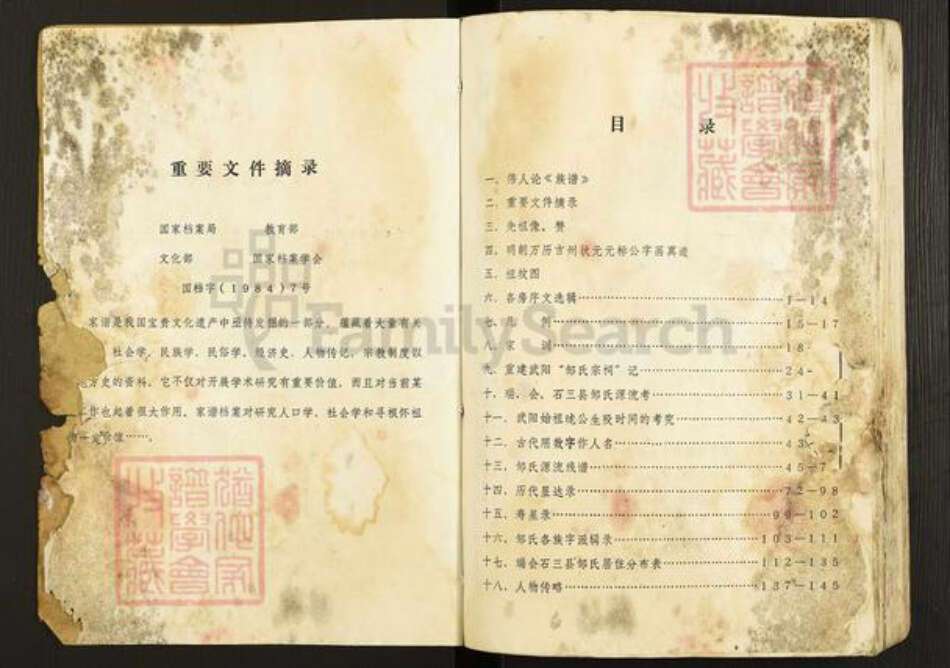 重要文件摘录
国家档案局 教育部
文化部 国家档案学会
国档字(1984)7号
家谱是我国宝贵文化遗产中亟待发掘的一部分，蕴藏着大量有关
社会学、民族学、民俗学、经济史、人物传记、宗教制度以
地方史的资料，它不仅对开展学术研究有重要价值，而且对当前某
工作也起着很大作用。家谱档案对研究人口学、社会学和寻根怀祖
有一定价值……。
目 录
一、伟人论《族谱》
二、重要文件摘录
三、先祖像、赞
四、明朝万历吉州状元元标公字画真迹
五、祖坟图
六、各房序文选辑……1—14
七、凡 例……15—17
八、家 训……18
九、重建武阳“邹氏宗祠”记……24-
十、瑞、会、石三县邹氏源流考……31—41
十一、武阳始祖公生殁时间的考究……42—43
十二、古代用数字作人名……43
十三、邹氏源流线谱……45—7
十四、历代显达录……72—98
十五、寿星录……99—102
十六、邹氏各族字派辑录……103—111
十七、瑞会石三县邹氏居住分布表……112—135
十八、人物传略……137—145
譜學會
收藏
FamilySearch
譜學會
收藏